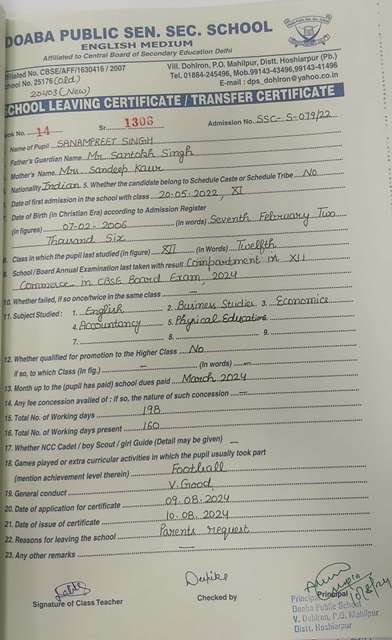 DOABA PUBLIC SEN. SEC. SCHOOL
ENGLISH MEDIUM
Affiliated to Central Board of Secondary Education Delhi
Affiliated No. CBSE/AFF/1630416 / 2007
Vill. Dohlron, P.O. Mahilpur, Distt. Hoshiarpur (Pb.)
School No. 25176 (old)
Tel. 01884-245496, Mob.99143-43496,99143-41496
20403 (New)
E-mail : dps_dohlron@yahoo.co.in
SCHOOL LEAVING CERTIFICATE / TRANSFER CERTIFICATE
Book No. 14 Sr. 1306 Admission No. SSC-S-079/22
Name of Pupil SANAMPREET SINGH
Father's Guardian Name Mr. Santokh Singh
Mother's Name Mrs. Sandeep Kaur
Nationality Indian 5. Whether the candidate belong to Schedule Caste or Schedule Tribe No
Date of first admission in the school with class 20-05-2022, XI
Date of Birth (in Christian Era) according to Admission Register
(in figures) 07-02-2006 (in words) Seventh February Two
Thousand Six
8. Class in which the pupil last studied (in figure) XII (in Words) Twelfth
9. School / Board Annual Examination last taken with result Compartment in XII
Commerce in CBSE Board Exam, 2024
10. Whether failed, if so once/twice in the same class —
11. Subject Studied : 1. English 2. Business Studies 3. Economics
4. Accountancy 5. Physical Education 6.
7. 8. 9.
12. Whether qualified for promotion to the Higher Class No
if so, to which Class (in fig.) — (in Words) —
13. Month up to the (pupil has paid) school dues paid March 2024
14. Any fee concession availed of : if so, the nature of such concession —
15. Total No. of Working days 198
16. Total No. of Working days present 160
17. Whether NCC Cadet / boy Scout / girl Guide (Detail may be given) —
18. Games played or extra curricular activities in which the pupil usually took part
(mention achievement level therein) Football
19. General conduct V. Good
20. Date of application for certificate 09.08.2024
21. Date of issue of certificate 10.08.2024
22. Reasons for leaving the school Parents request
23. Any other remarks —
Signature of Class Teacher Checked by Principal
10/8/24
Principal
Doaba Public School
V. Dohlron, P.O. Mahilpur
Distt. Hoshiarpur